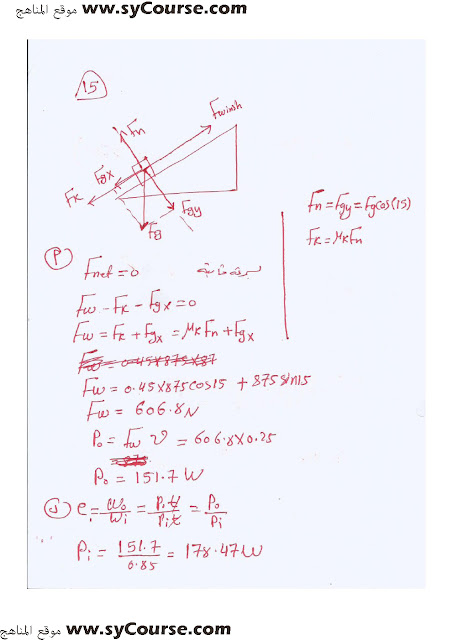 موقع المناهج www.syCourse.com
15
Fn
Fwinsh
Fgx
Fk
Fgy
Fg
Fn = Fgy = Fg cos(15)
Fk = μk Fn
Fnet = 0
Fw - Fk - Fgx = 0
Fw = Fk + Fgx = μk Fn + Fgx
Fw = 0.45×875×87
Fw = 0.45×875 cos15 + 875 sin15
Fw = 606.8 N
Po = Fw v = 606.8×0.25
Po = 151.7 W
Pi = 151.7/0.85 = 178.47 W
موقع المناهج www.syCourse.com